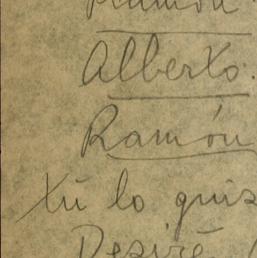 Ramón.
Alberto.
Ramón
Tú lo quis
Desiré